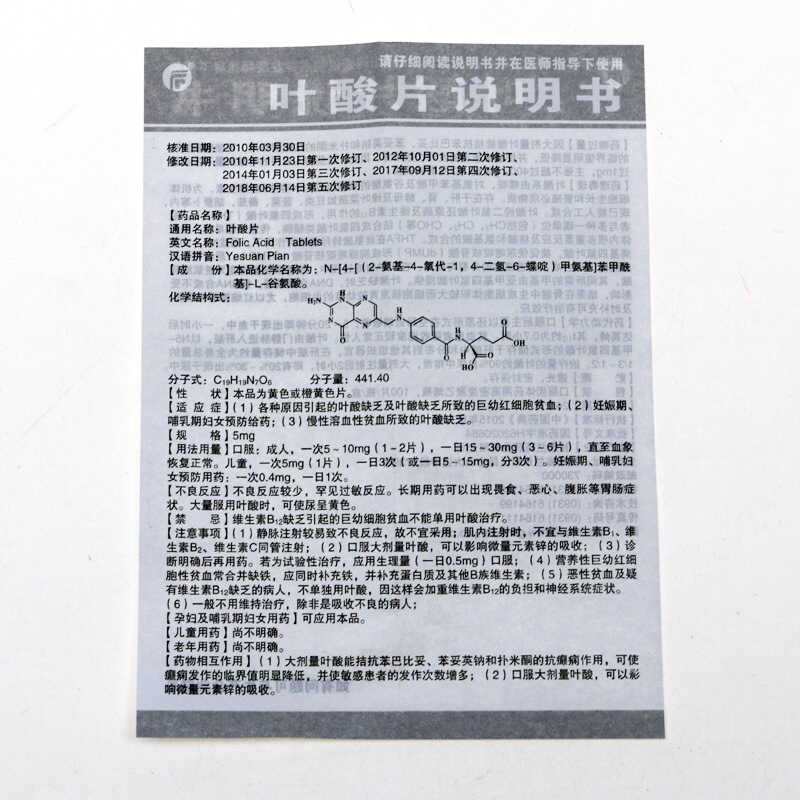 请仔细阅读说明书并在医师指导下使用
叶酸片说明书
核准日期：2010年03月30日
修改日期：2010年11月23日第一次修订、2012年10月01日第二次修订、
2014年01月03日第三次修订、2017年09月12日第四次修订、
2018年06月14日第五次修订
【药品名称】
通用名称：叶酸片
英文名称：Folic Acid Tablets
汉语拼音：Yesuan Pian
【成 份】本品化学名称为：N-[4-[（2-氨基-4-氧代-1，4-二氢-6-蝶啶）甲氨基]苯甲酰
基]-L-谷氨酸。
化学结构式：
分子式：C₁₉H₁₉N₇O₆ 分子量：441.40
【性 状】本品为黄色或橙黄色片。
【适 应 症】（1）各种原因引起的叶酸缺乏及叶酸缺乏所致的巨幼红细胞贫血；（2）妊娠期、
哺乳期妇女预防给药；（3）慢性溶血性贫血所致的叶酸缺乏。
【规 格】5mg
【用法用量】口服：成人，一次5~10mg（1~2片），一日15~30mg（3~6片），直至血象
恢复正常。儿童，一次5mg（1片），一日3次（或一日5~15mg，分3次）。妊娠期、哺乳妇
女预防用药：一次0.4mg，一日1次。
【不良反应】不良反应较少，罕见过敏反应。长期用药可以出现畏食、恶心、腹胀等胃肠症
状。大量服用叶酸时，可使尿呈黄色。
【禁 忌】维生素B₁₂缺乏引起的巨幼细胞贫血不能单用叶酸治疗。
【注意事项】（1）静脉注射较易致不良反应，故不宜采用；肌内注射时，不宜与维生素B₁、维
生素B₂、维生素C同管注射；（2）口服大剂量叶酸，可以影响微量元素锌的吸收；（3）诊
断明确后再用药。若为试验性治疗，应用生理量（一日0.5mg）口服；（4）营养性巨幼红细
胞性贫血常合并缺铁，应同时补充铁，并补充蛋白质及其他B族维生素；（5）恶性贫血及疑
有维生素B₁₂缺乏的病人，不单独用叶酸，因这样会加重维生素B₁₂的负担和神经系统症状。
（6）一般不用维持治疗，除非是吸收不良的病人；
【孕妇及哺乳期妇女用药】可应用本品。
【儿童用药】尚不明确。
【老年用药】尚不明确。
【药物相互作用】（1）大剂量叶酸能拮抗苯巴比妥、苯妥英钠和扑米酮的抗癫痫作用，可使
癫痫发作的临界值明显降低，并使敏感患者的发作次数增多；（2）口服大剂量叶酸，可以影
响微量元素锌的吸收。